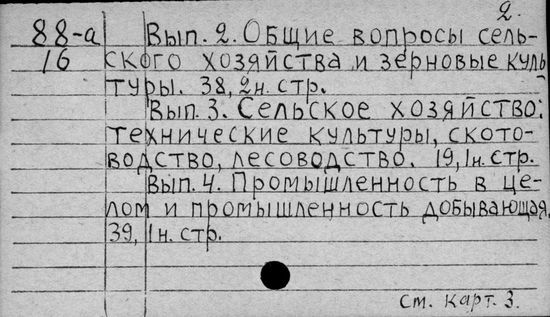 2.
88-а Вып. 2. Общие вопросы сель-
16 ского хозяйства и зерновые куль-
туры. 38, 2н. стр.
Вып. 3. Сельское хозяйство:
технические культуры, ското-
водство, лесоводство. 19, 1н. стр.
Вып. 4. Промышленность в це-
лом и промышленность добывающая.
39, 1н. стр.
Ст. карт. 3.